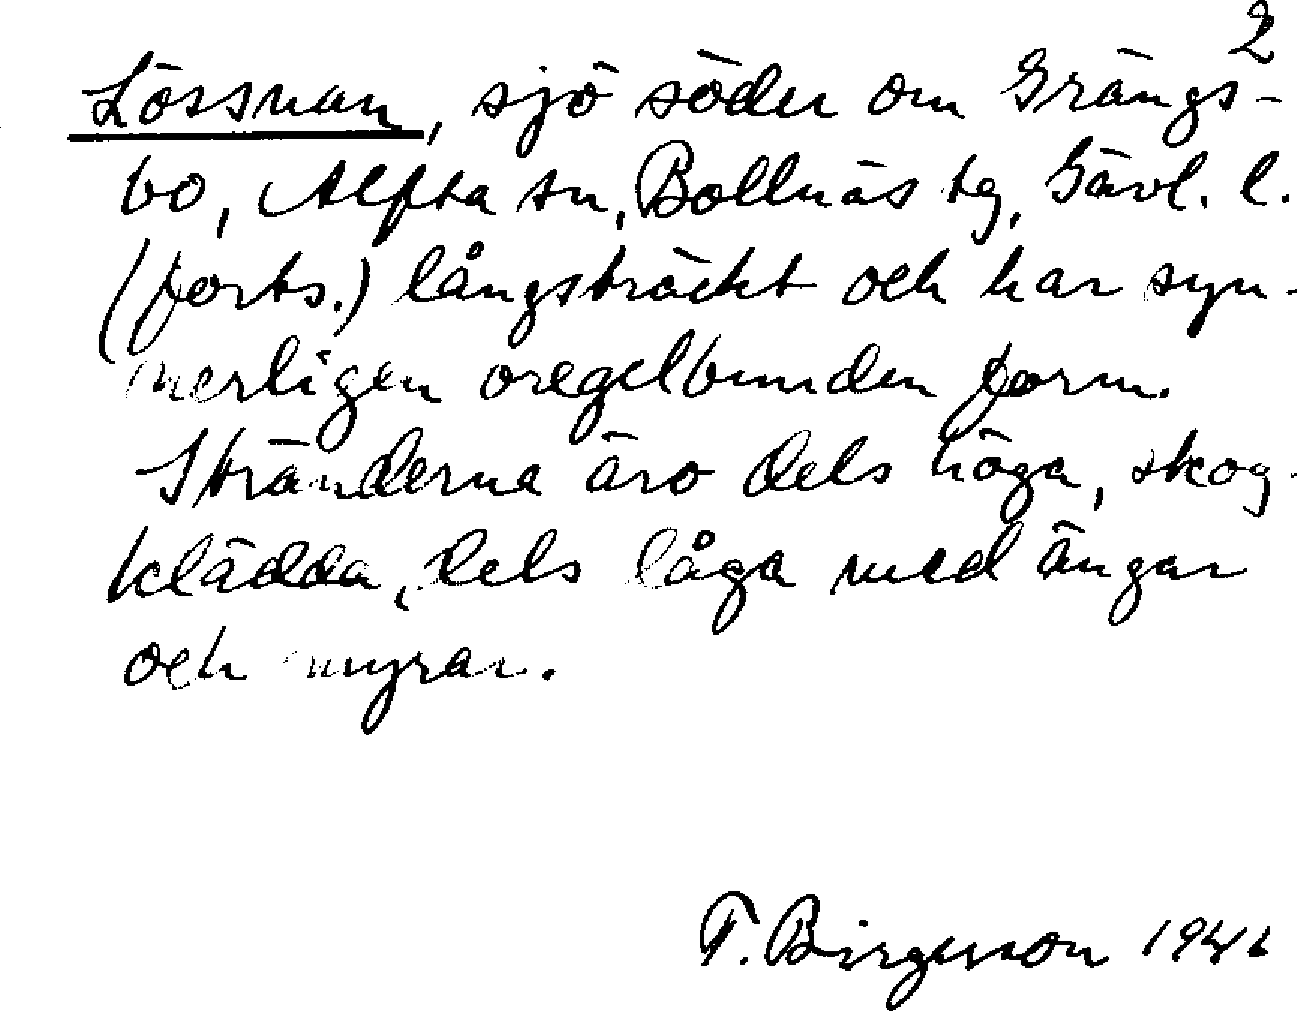 2
Lössnan, sjö söder om Grängs-
bo, Alfta sn, Bollnäs tg, Gävl. l.
(forts.) långsträckt och har syn-
nerligen oregelbunden form.
Stränderna äro dels höga, skog-
klädda, dels låga med ängar
och myrar.
T. Birgerson 1946